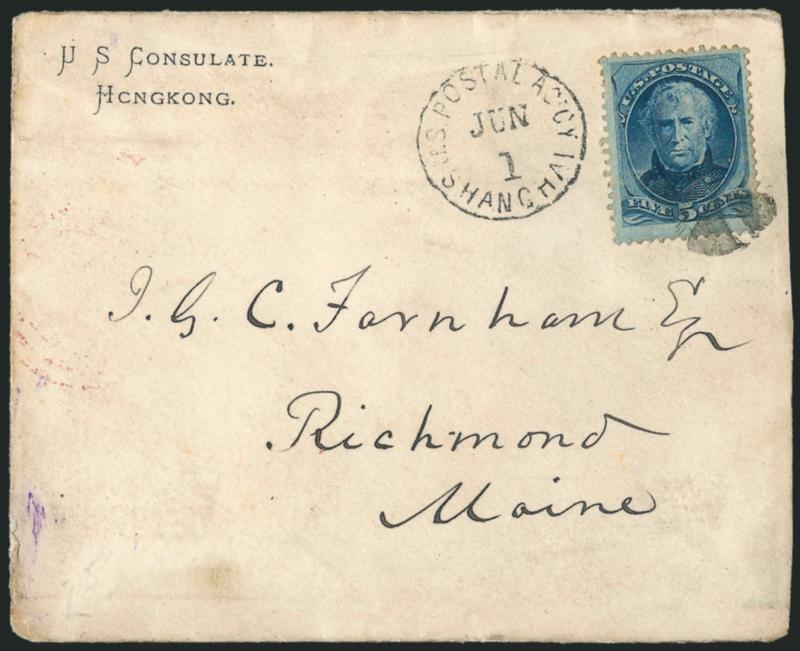 U S CONSULATE.
HONGKONG.
U.S. POSTAL AG'CY
JUN
1
SHANGHAI
U.S. POSTAGE
FIVE 5 CENTS
J. G. C. Farnham Esq
Richmond
Maine